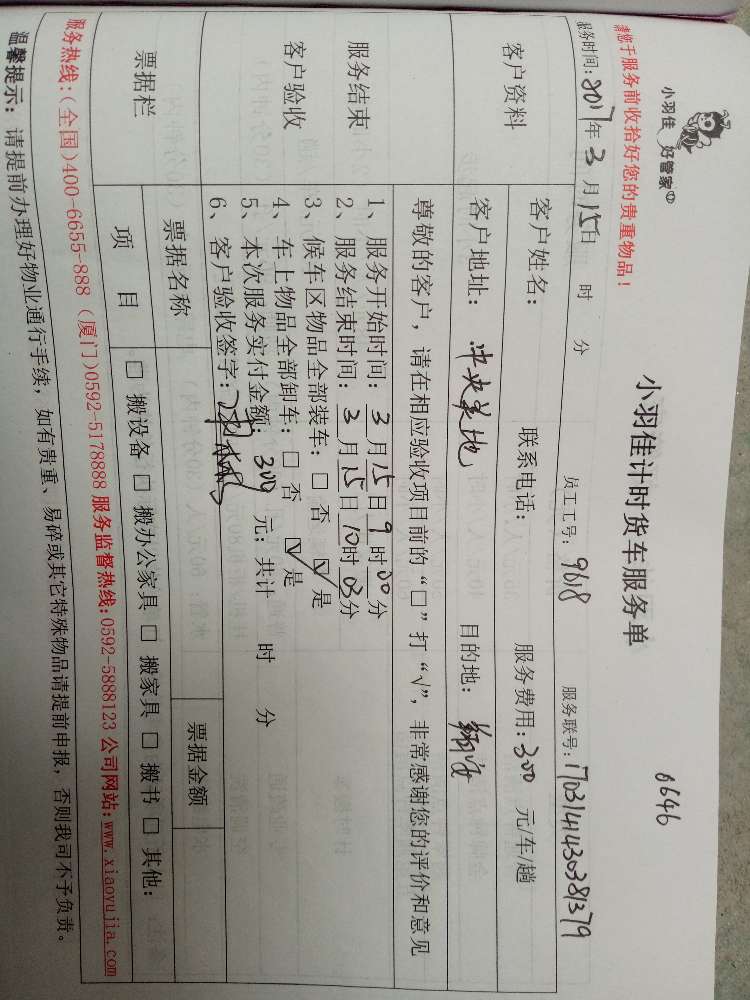 0646
小羽佳 好管家
小羽佳计时货车服务单
请您于服务前收拾好您的贵重物品！
服务时间：2017年3月15日 时 分 员工工号：9618 服务联号：1703141430381379
客户资料
客户姓名： 联系电话： 服务费用：300 元/车/趟
客户地址：中央美地 目的地：
尊敬的客户，请在相应验收项目前的“□”打“√”，非常感谢您的评价和意见
服务结束
客户验收
1、服务开始时间：3月15日9时00分
2、服务结束时间：3月15日10时03分
3、候车区物品全部装车：□ 否 ☑ 是
4、车上物品全部卸车：□ 否 ☑ 是
5、本次服务实付金额：300 元；共计 时 分
6、客户验收签字：
票据栏
票据名称 票据金额
项 目 □ 搬设备 □ 搬办公家具 □ 搬家具 □ 搬书 □ 其他：
服务热线：(全国)400-6655-888 (厦门)0592-5178888 服务监督热线：0592-5888123 公司网站：www.xiaoyujia.com
温馨提示：请提前办理好物业通行手续，如有贵重、易碎或其它特殊物品请提前申报，否则我司不予负责。